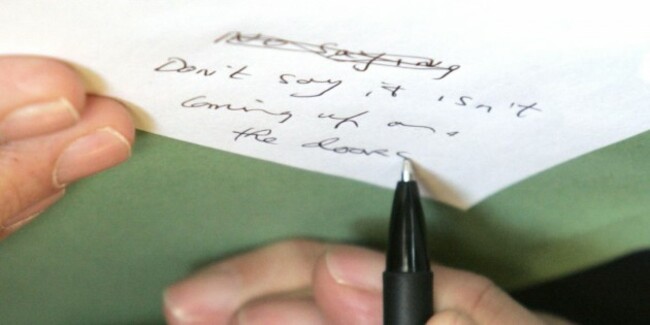 No saying
Don't say it isn't
coming up on
the doors